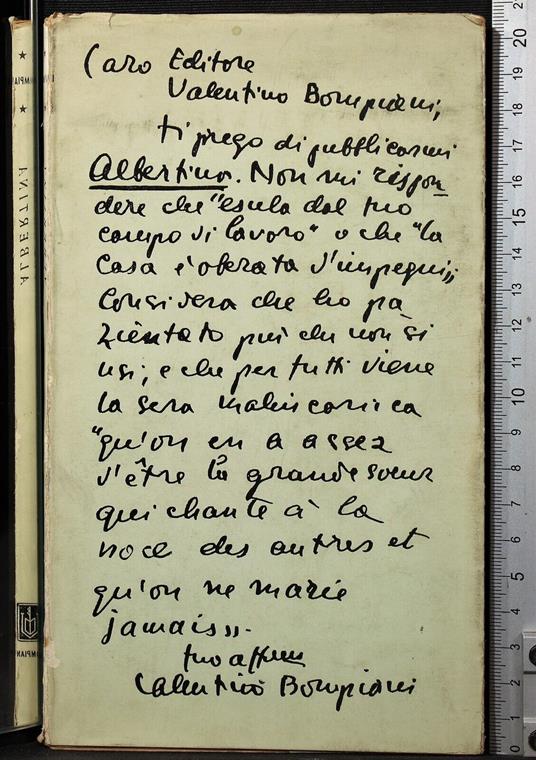 Caro Editore
Valentino Bompiani,
ti prego di pubblicarmi
Albertina. Non mi rispon=
dere che "esula dal tuo
campo di lavoro" o che "la
Casa è oberata d'impegni„
Considera che ho pa
zientato più che non si
usi, e che per tutti viene
la sera malinconica
"qu'on en a assez
d'être la grande soeur
qui chante à la
noce des autres et
qu'on ne marie
jamais„.
tuo affmo
Valentino Bompiani
ALBERTINA
20
19
18
17
16
15
14
13
12
11
10
9
8
7
6
5
4
3
2
1
0